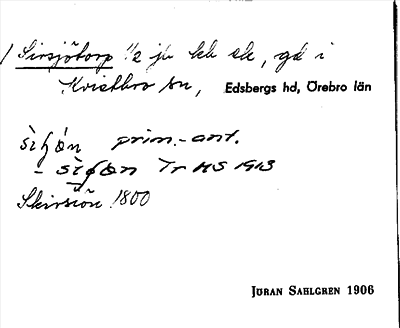 Sirsjötorp 1/2 jb kb sk, gd i
Kvistbro sn, Edsbergs hd, Örebro län
prim.-ant.
Tr HS 1913
Skirsiön 1800
JÖRAN SAHLGREN 1906